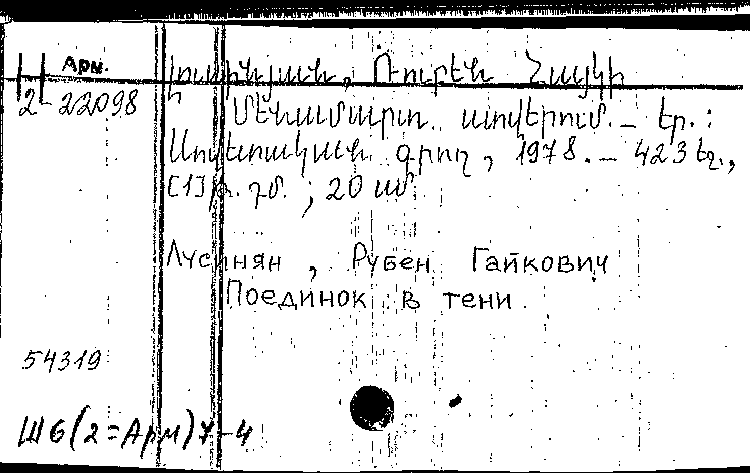 Арм.
2-22098
Լուսինյան, Ռուբեն Հայկի
Մենամարտ ստվերում. — Եր.:
Սովետական գրող, 1978. — 423 էջ.,
[1] թ. դմ.; 20 սմ
Лусинян, Рубен Гайкович
Поединок в тени
54319
Ш6(2=Арм)7-4